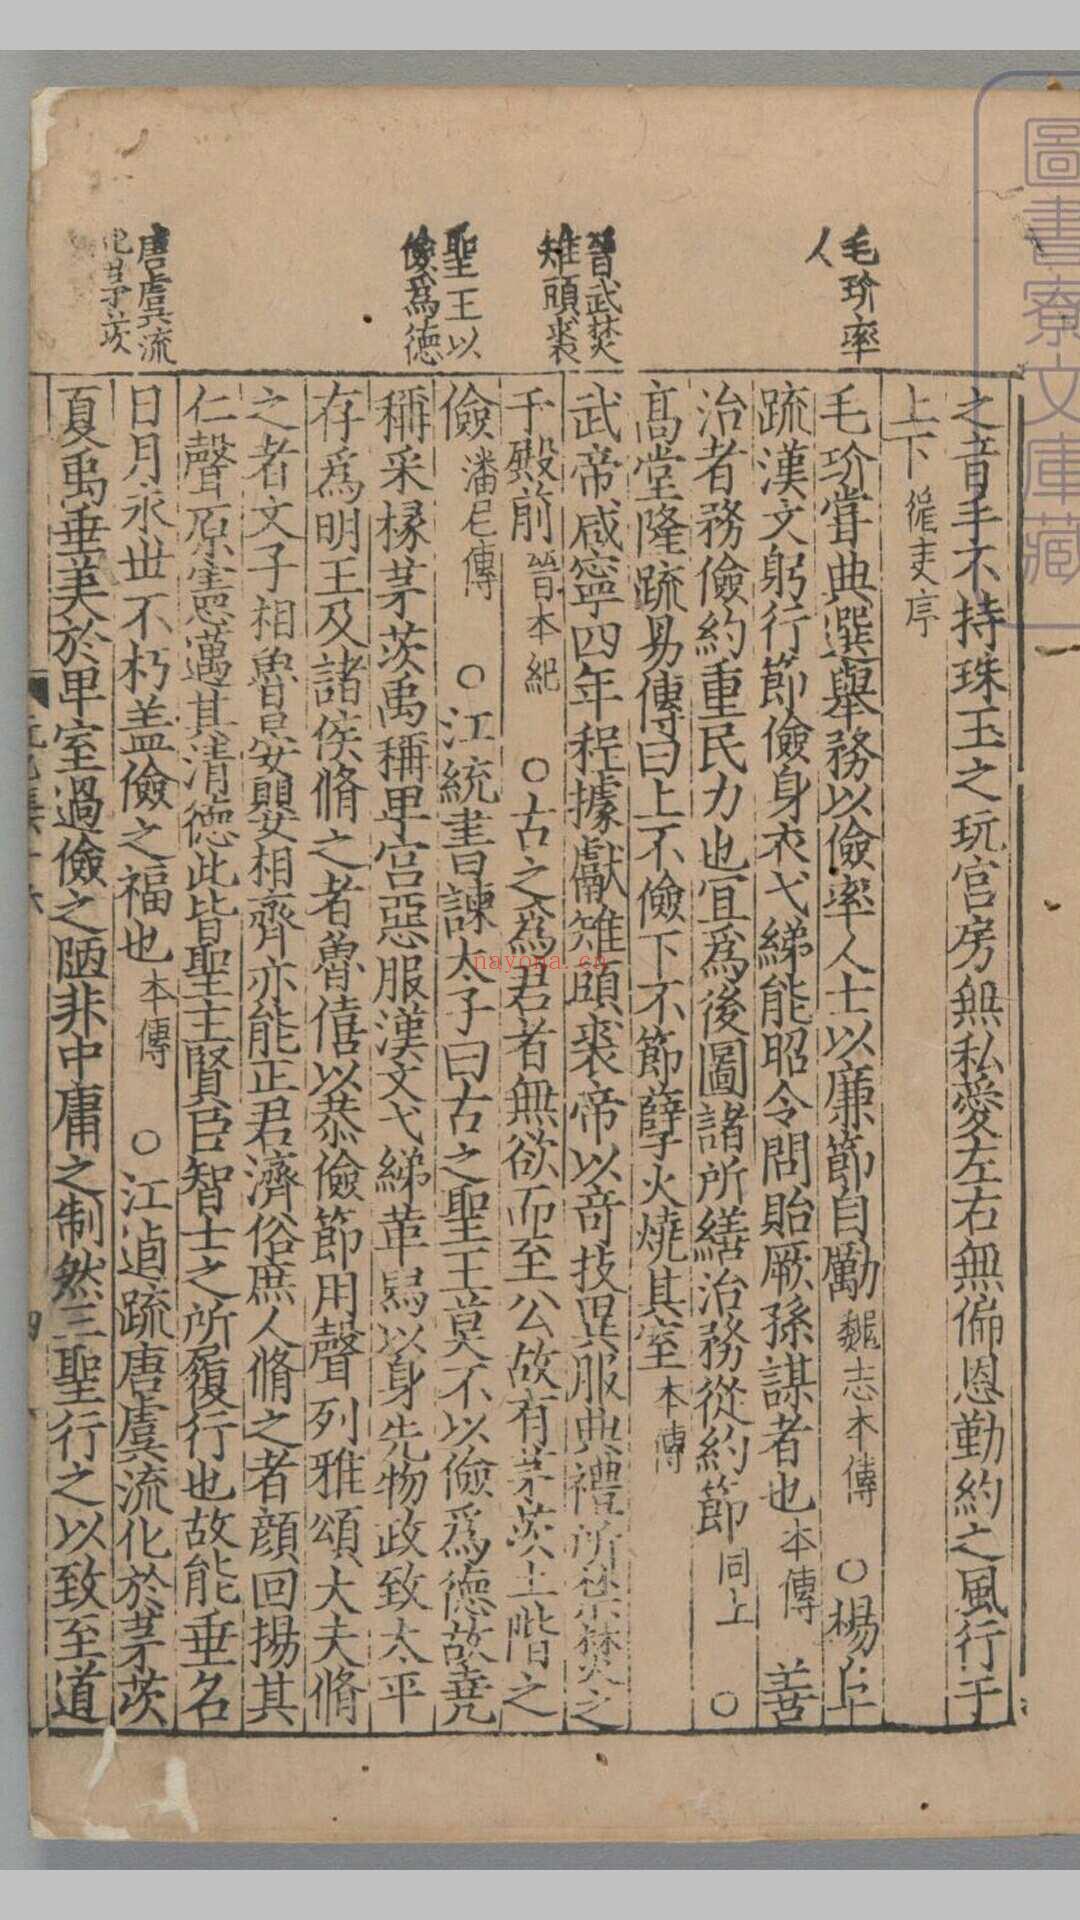 之音手不持珠玉之玩宫房無私愛左右無偏恩勤約之風行于
上下循吏序
毛玠率
人
毛玠嘗典選舉務以儉率人士以廉節自勵魏志本傳 ○楊阜
疏漢文躬行節儉身衣弋綈能昭令問貽厥孫謀者也本傳 善
治者務儉約重民力也宜爲後圖諸所繕治務從約節同上 ○
髙堂隆疏易傳曰上不儉下不節孽火燒其室本傳
晉武焚
雉頭裘
武帝咸寧四年程據獻雉頭裘帝以竒技異服典禮所禁焚之
于殿前晉本紀 ○古之爲君者無欲而至公故有茅茨土階之
聖王以
儉爲德
儉潘尼傳 ○江統書諫太子曰古之聖王莫不以儉爲德故堯
稱采椽茅茨禹稱卑宫惡服漢文弋綈革舄以身先物政致太平
存爲明王及諸侯脩之者魯僖以恭儉節用聲列雅頌大夫脩
之者文子相魯晏嬰相齊亦能正君濟俗庶人脩之者顔回揚其
仁聲原憲邁其清德此皆聖主賢臣智士之所履行也故能垂名
日月永世不朽盖儉之福也本傳 ○江逌疏唐虞流化於茅茨
唐虞流
化茅茨
夏禹垂美於卑室過儉之陋非中庸之制然三聖行之以致至道
圖書寮文庫藏
nayona.cn